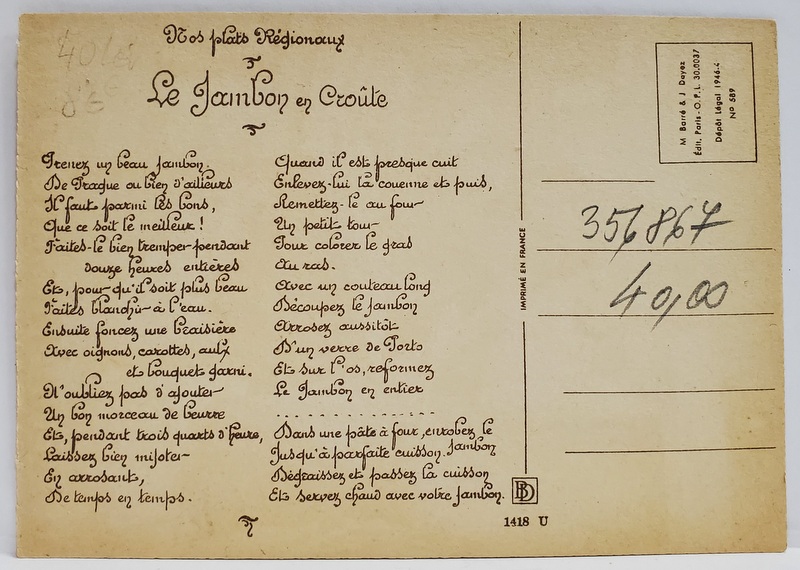 Nos plats Régionaux
Le Jambon en Croûte
Prenez un beau jambon.
De Prague ou bien d'ailleurs
Il faut parmi les bons,
Que ce soit le meilleur !
Faites-le bien tremper pendant
douze heures entières
Et, pour qu'il soit plus beau
Faites blanchir à l'eau.
Ensuite foncez une braisière
Avec oignons, carottes, aulx
et bouquet garni.
N'oubliez pas d'ajouter
Un bon morceau de beurre
Et, pendant trois quarts d'heure,
Laissez bien mijoter
En arrosant,
De temps en temps.
Quand il est presque cuit
Enlevez-lui la couenne et puis,
Remettez-le au four
Un petit tour
Pour colorer le gras
Au ras.
Avec un couteau long
Découpez le Jambon
Arrosez aussitôt
D'un verre de Porto
Et sur l'os, reformez
Le Jambon en entier
. . . . . . . . . . . . . . .
Dans une pâte à four, enrobez le
Jambon
Jusqu'à parfaite cuisson.
Dégraissez et passez la cuisson
Et servez chaud avec votre Jambon.
BD
1418 U
IMPRIMÉ EN FRANCE
M Barré & J Dayez
Édit. Paris-O.P.I. 30.0037
Dépôt Légal 1946-4
No 589
356867
40,00